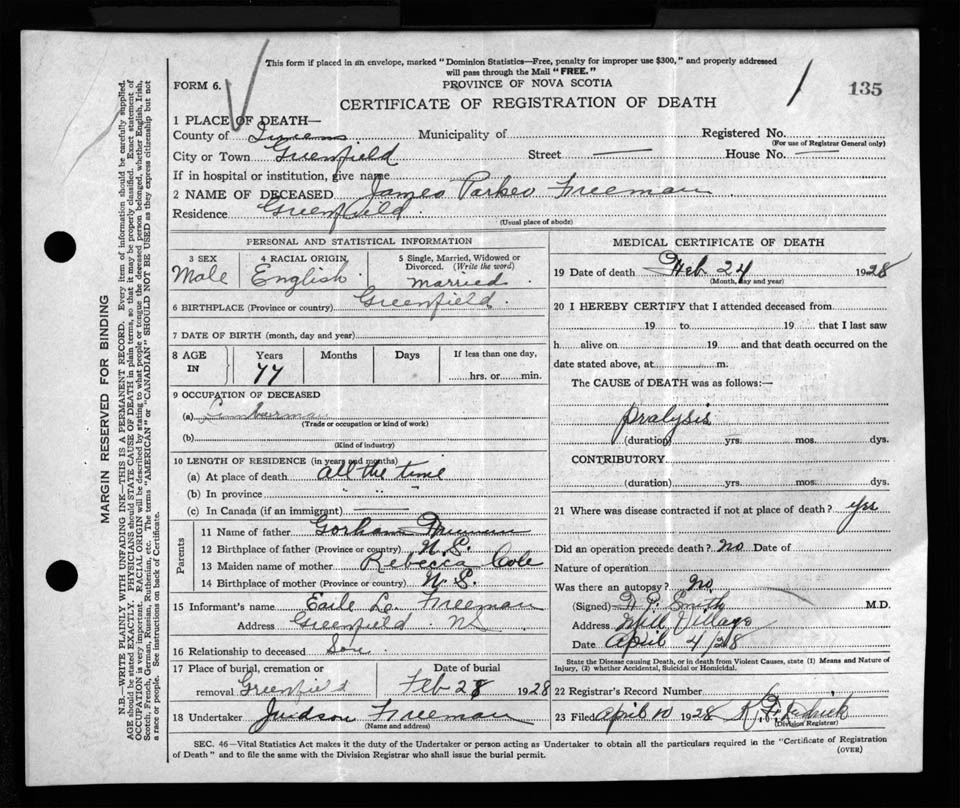 This form if placed in an envelope, marked "Dominion Statistics—Free, penalty for improper use $300," and properly addressed
will pass through the Mail "FREE."
FORM 6. PROVINCE OF NOVA SCOTIA
135
CERTIFICATE OF REGISTRATION OF DEATH
1 PLACE OF DEATH—
County of Queens Municipality of Registered No.
(For use of Registrar General only)
City or Town Greenfield Street — House No. —
If in hospital or institution, give name
2 NAME OF DECEASED James Parker Freeman
Residence Greenfield
(Usual place of abode)
PERSONAL AND STATISTICAL INFORMATION
3 SEX 4 RACIAL ORIGIN 5 Single, Married, Widowed or
Divorced. (Write the word)
Male English Married
6 BIRTHPLACE (Province or country) Greenfield
7 DATE OF BIRTH (month, day and year)
8 AGE IN Years Months Days If less than one day,
77 hrs. or min.
9 OCCUPATION OF DECEASED
(a) Lumberman
(Trade or occupation or kind of work)
(b)
(Kind of industry)
10 LENGTH OF RESIDENCE (in years and months)
(a) At place of death all the time
(b) In province " " "
(c) In Canada (if an immigrant)
Parents
11 Name of father Gorham Freeman
12 Birthplace of father (Province or country) N.S.
13 Maiden name of mother Rebecca Cole
14 Birthplace of mother (Province or country) N.S.
15 Informant's name Earle L. Freeman
Address Greenfield NS
16 Relationship to deceased Son
17 Place of burial, cremation or removal Greenfield
Date of burial
Feb 28 1928
18 Undertaker Judson Freeman
(Name and address)
MEDICAL CERTIFICATE OF DEATH
19 Date of death Feb 24 1928
(Month, day and year)
20 I HEREBY CERTIFY that I attended deceased from
19 to 19 that I last saw
h alive on 19 and that death occurred on the
date stated above, at m.
The CAUSE of DEATH was as follows:—
pralysis
(duration) yrs. mos. dys.
CONTRIBUTORY
(duration) yrs. mos. dys.
21 Where was disease contracted if not at place of death? yes
Did an operation precede death? no Date of
Nature of operation
Was there an autopsy? no
(Signed) Smith M.D.
Address Mill Village
Date April 4/28
State the Disease causing Death, or in death from Violent Causes, state (1) Means and Nature of
Injury, (2) whether Accidental, Suicidal or Homicidal.
22 Registrar's Record Number
23 Filed April 10 1928
(Division Registrar)
SEC. 46—Vital Statistics Act makes it the duty of the Undertaker or person acting as Undertaker to obtain all the particulars required in the "Certificate of Registration
of Death" and to file the same with the Division Registrar who shall issue the burial permit. (OVER)
MARGIN RESERVED FOR BINDING
N.B.—WRITE PLAINLY WITH UNFADING INK—THIS IS A PERMANENT RECORD. Every item of information should be carefully supplied.
AGE should be stated EXACTLY. PHYSICIANS should STATE CAUSE OF DEATH in plain terms, so that it may be properly classified. Exact statement of
OCCUPATION is very important. RACIAL ORIGIN will be described by stating to what people or tongue the deceased person belonged, whether English, Irish,
Scotch, French, German, Russian, Ruthenian, etc. The terms "AMERICAN" or "CANADIAN" SHOULD NOT BE USED as they express citizenship but not
a race or people. See instructions on back of Certificate.